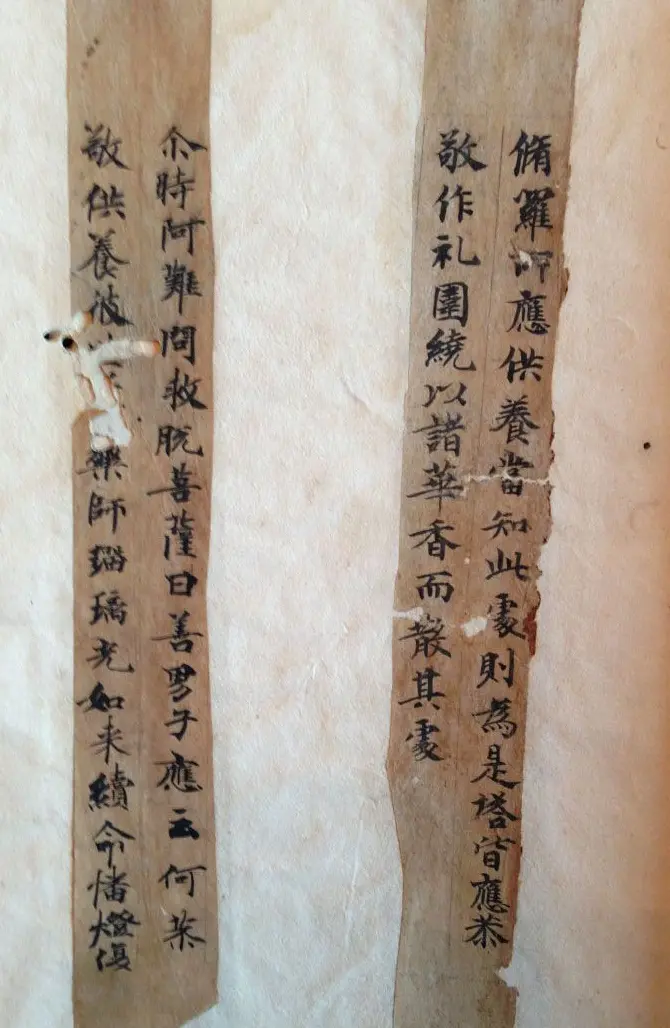 脩羅所應供養當知此處則為是塔皆應恭
敬作礼圍繞以諸華香而散其處
尒時阿難問救脫菩薩曰善男子應云何恭
敬供養彼 藥師瑠璃光如来續命幡燈復